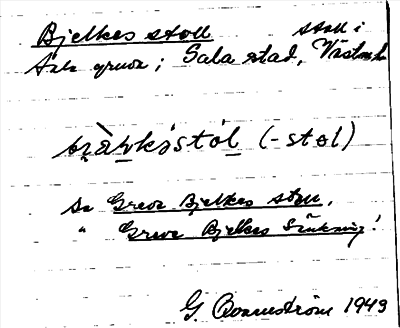 Bjelkes stoll stoll i
Sala gruva; Sala stad, Västml.
(-stol)
Se Greve Bjelkes stoll,
" Greve Bjelkes Sänkning!
G. Bonneström 1943